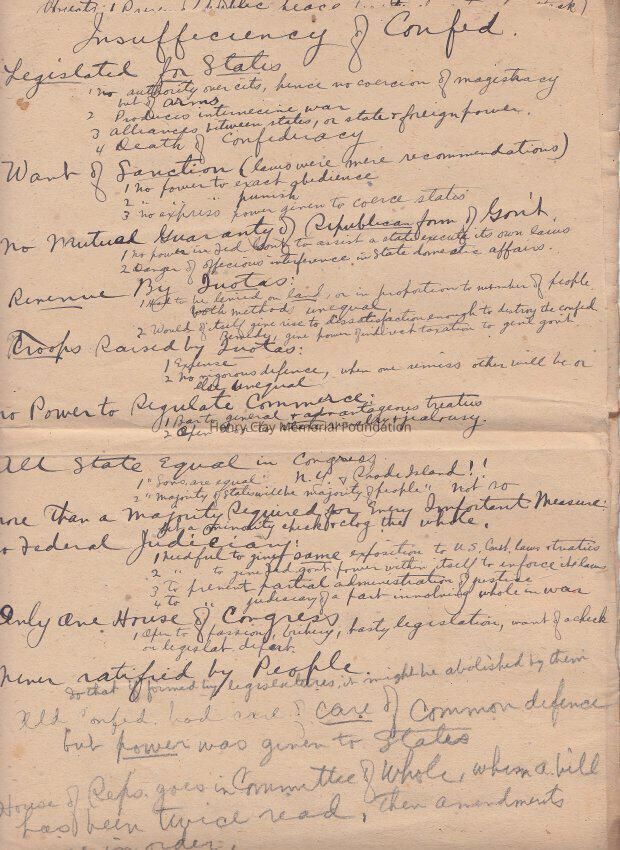 Insufficiency of Confed.
Legislated for States
1 no authority over cits, hence no coercion of magistracy
but of arms
2 Produces internecine war
3 alliances between states, or state & foreign power.
4 Death of Confederacy
Want of Sanction (laws were mere recommendations)
1 No power to exact obedience
2 " " " punish
3 no express power given to coerce states
No Mutual Guaranty of Republican form of Gov't.
1 no power in Fed Gov't to assist a state execute its own laws
2 Danger of officious interference in State domestic affairs.
Revenue By Quotas:
1 Had to be levied on land, or in proportion to number of people
both methods unequal
2 Would of itself give rise to dissatisfaction enough to destroy the confed
Remedy, give power of indirect taxation to gen'l gov't.
Troops Raised by Quotas:
1 Expense
2 No vigorous defence, when one remiss other will be or
unequal
no Power to Regulate Commerce:
1 Bar to general & advantageous treaties
2 Open to State jealousy.
Henry Clay Memorial Foundation
All State Equal in Congress
1 "Sovs. are equal" N.Y. & Rhode Island!!
2 "Majority of States will be majority of people" Not so
more than a Majority Required for Every Important Measure:
a minority check & clog the whole.
Federal Judiciary:
1 Needful to give same exposition to U.S. Const. laws & treaties
2 " to give Fed gov't power within itself to enforce its laws
3 To prevent partial administration of justice
4 To " judiciary of a part involving whole in war
Only One House of Congress
1 Open to passion, bribery, hasty legislation, want of a check
on legislat. depart.
Never ratified by People.
So that if formed by legislatures, it might be abolished by them
Old Confed. had care of Common defence
but power was given to States
House of Reps. goes in Committee of Whole, when a bill
has been twice read, then amendments
in order.